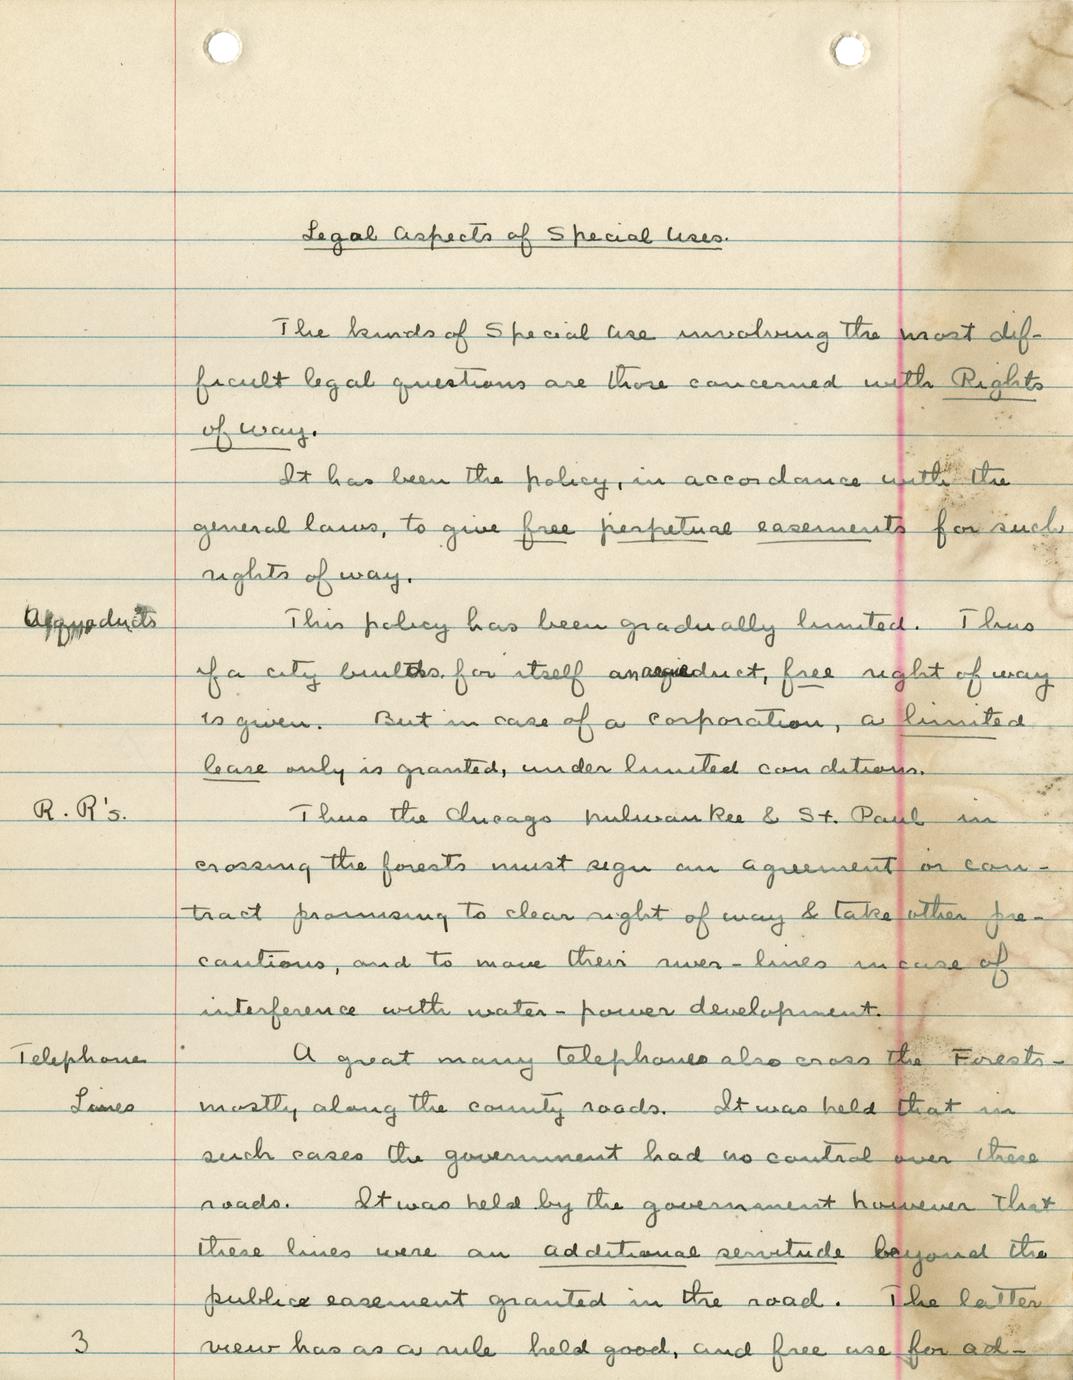 Legal Aspects of Special Uses.
The kinds of Special Use involving the most dif-
ficult legal questions are those concerned with Rights
of way.
It has been the policy, in accordance with the
general laws, to give free perpetual easements for such
rights of way.
Aqueducts This policy has been gradually limited. Thus
if a city builds for itself an aqueduct, free right of way
is given. But in case of a corporation, a limited
lease only is granted, under limited conditions.
R. R's. Thus the Chicago Milwaukee & St. Paul in
crossing the forests must sign an agreement or con-
tract promising to clear right of way & take other pre-
cautions, and to move their river-lines in case of
interference with water-power development.
Telephone A great many telephones also cross the Forests-
Lines mostly along the county roads. It was held that in
such cases the government had no control over these
roads. It was held by the government however that
these lines were an additional servitude beyond the
public easement granted in the road. The latter
view has as a rule held good, and free use for ad-
3